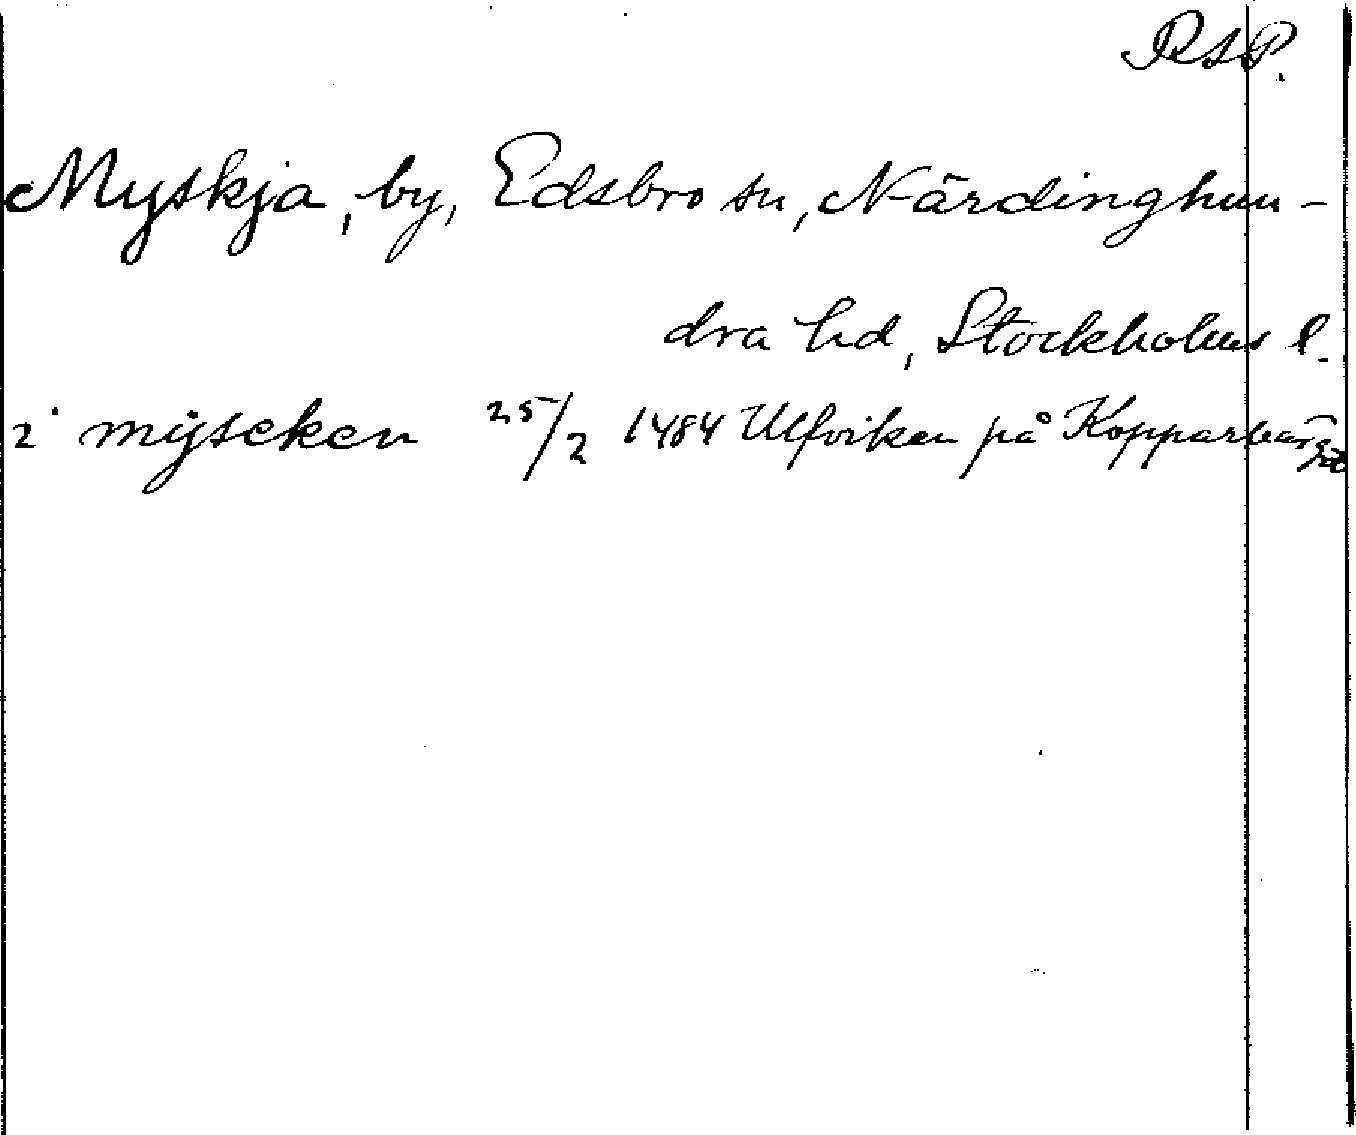 RAP.
Myskja, by, Edsbro sn, Närdinghun-
dra hd, Stockholms l.
i mÿseken 25/2 1484 Ulfviken på Kopparbärget